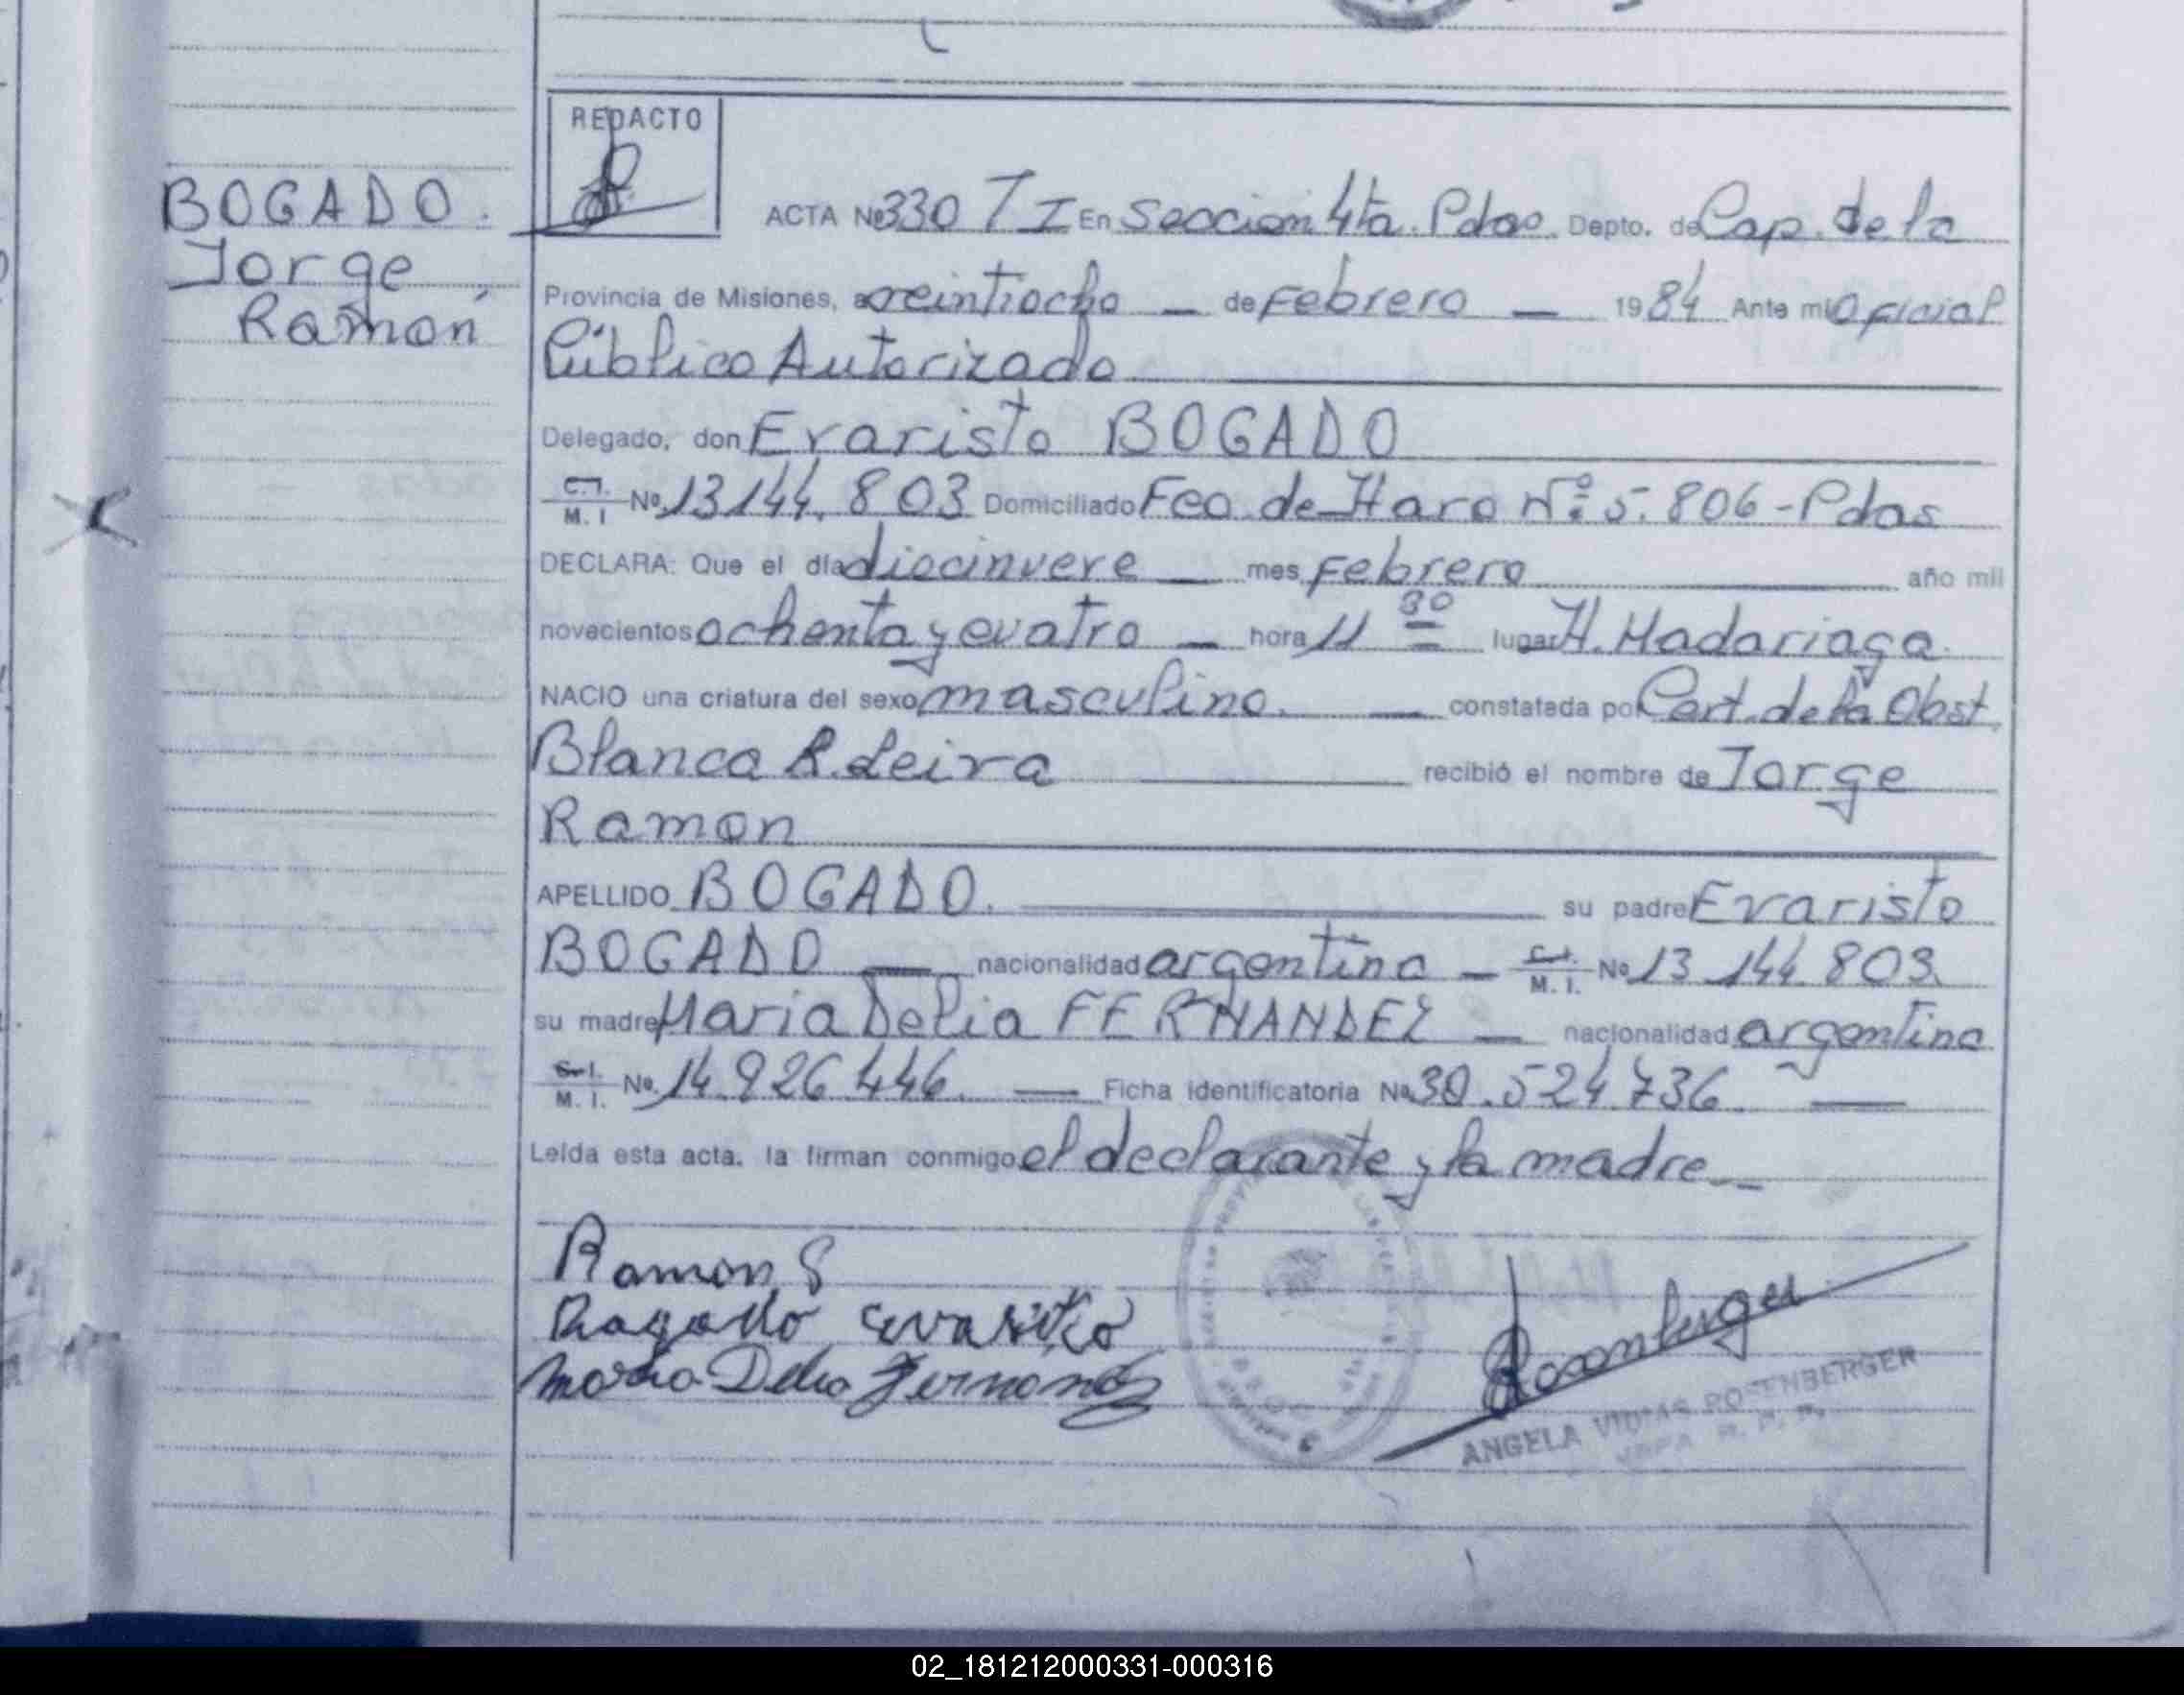 REDACTO
BOGADO.
Jorge
Ramón
ACTA Nº 330 T I En Seccion 4ta. Pdas. Depto. de Cap. de la
Provincia de Misiones, a veintiocho — de Febrero — 1984 Ante mi Oficial
Público Autorizado
Delegado, don Evaristo BOGADO
C.I. M. I Nº 13144.803 Domiciliado Fco. de Haro Nº: 5.806 - Pdas
DECLARA: Que el día diecinueve — mes Febrero año mil
novecientos ochenta y cuatro — hora 11 30 lugar H. Madariaga.
NACIO una criatura del sexo masculino. — constatada por Cert. de la Obst.
Blanca R. Leiva recibió el nombre de Jorge
Ramon
APELLIDO BOGADO. su padre Evaristo
BOGADO — nacionalidad argentina — C.I. M. I. Nº 13.144.803.
su madre Maria Delia FERNANDEZ — nacionalidad argentina
C.I. M. I. Nº 14.926.446. — Ficha identificatoria Nº 30.524.736. —
Leída esta acta, la firman conmigo el declarante y la madre —
Ramon S
Bogado evaristo
Maria Delia Fernandez
Rosenberger
ANGELA ROSENBERGER
02_181212000331-000316